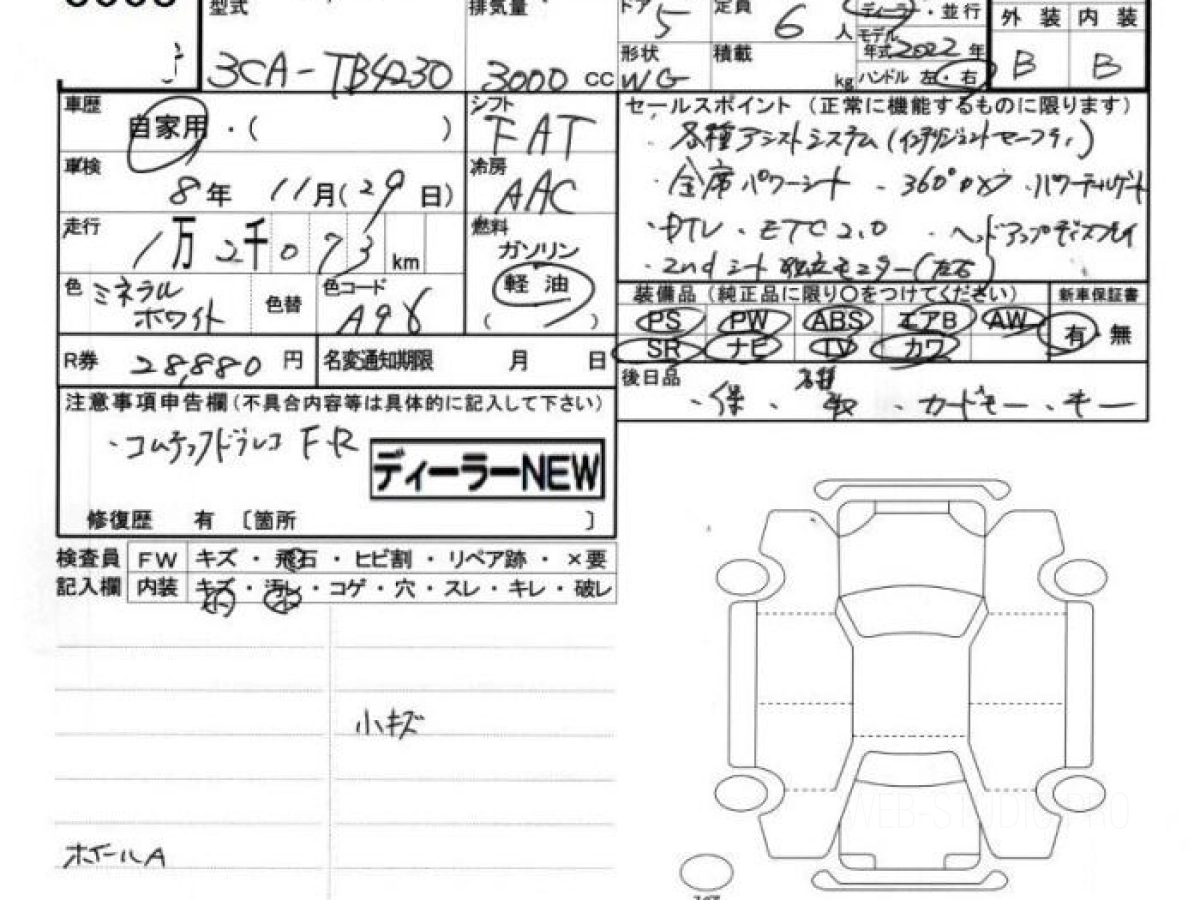 型式
3CA-TB4230
排気量
3000 CC
ドア 5
定員 6 人
ディーラー・並行
モデル年式 2022 年
外装 内装
B B
形状 WG
積載 kg
ハンドル 左・右
車歴 自家用・( )
シフト FAT
車検 8年 11月(29日)
冷房 AAC
走行 1万2千073 km
燃料 ガソリン 軽油 ( )
色 ミネラルホワイト
色替
色コード A96
R券 28,880 円
名変通知期限 月 日
セールスポイント (正常に機能するものに限ります)
・各種アシストシステム(インテリジェントセーフティ)
・全席パワーシート ・360°カメラ ・パワーテールゲート
・DTV ・ETC 2.0 ・ヘッドアップディスプレイ
・2ndシート独立モニター(左右)
装備品 (純正品に限り〇をつけてください)
新車保証書
PS PW ABS エアB AW
SR ナビ TV カワ
有・無
後日品
・保 ・取 ・カードキー ・キー
注意事項申告欄(不具合内容等は具体的に記入して下さい)
・コムテックドラレコ F・R
ディーラーNEW
修復歴 有 〔箇所 〕
検査員記入欄
FW キズ・飛石・ヒビ割・リペア跡・×要
内装 キズ・汚レ・コゲ・穴・スレ・キレ・破レ
小 小
小キズ
ホイールA
WEB-STUDIO.PRO